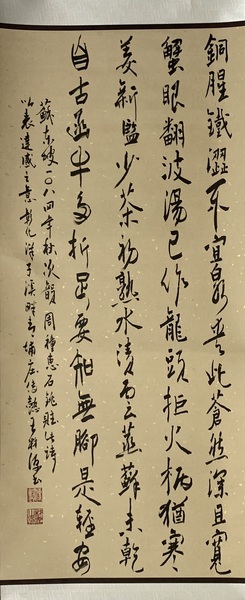 銅腥鐵澀不宜泉愛此蒼然深且寬
蟹眼翻波湯已作龍頭拒火柄猶寒
姜新鹽少茶初熟水漬雲蒸蘚未乾
自古函牛多折足要知無腳是輕安
蘇東坡一〇八四年秋次韻周穜惠石銚賦此詩
以表達感之意彰化洋子溪畔